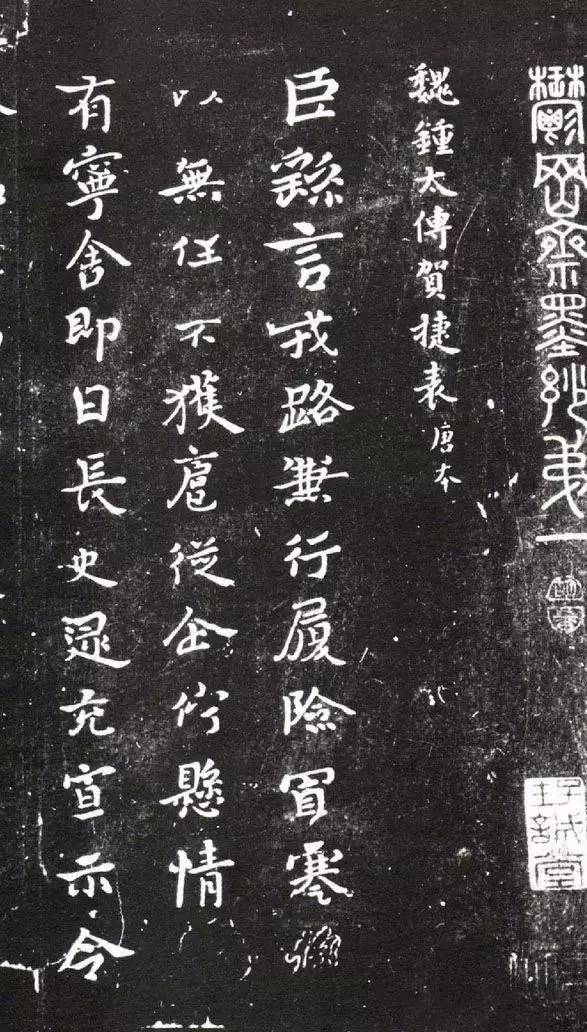 鬱岡齋墨妙弟一
魏鍾太傅賀捷表唐本
臣繇言戎路兼行履險冒寒
以無任不獲扈從企佇懸情
有寧舍即日長史逯充宣示令